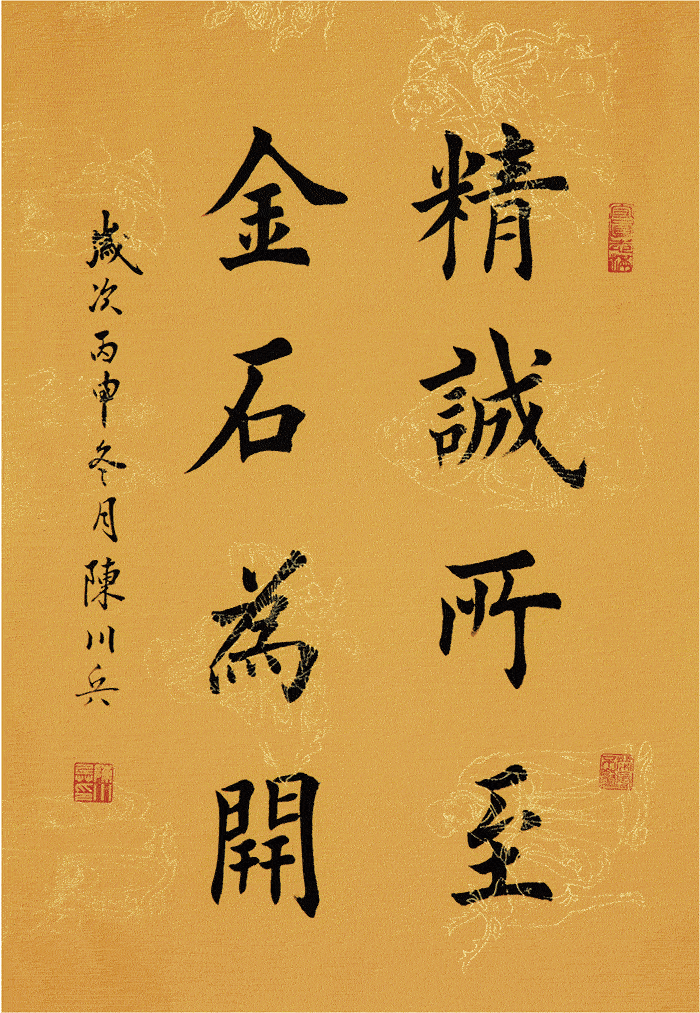 精誠所至
金石為開
歲次丙申冬月陳川兵